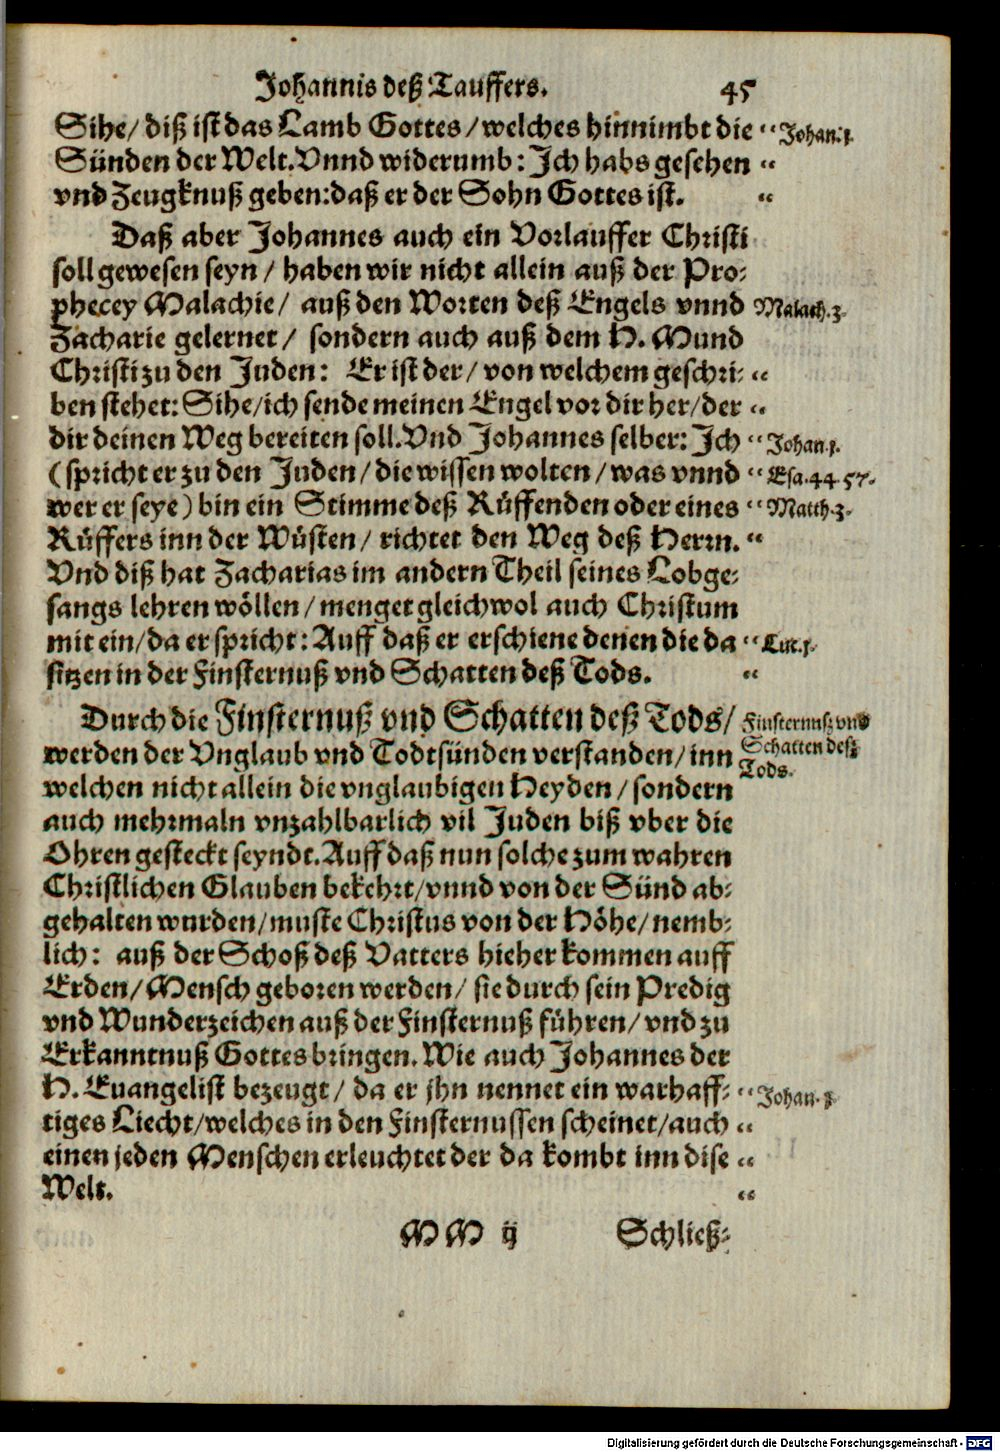 Johannis deß Tauffers. 45
Sihe/ diß ist das Lamb Gottes/welches hinnimbt die “ Johan. 1.
Sünden der Welt. Vnnd widerumb: Ich habs gesehen “
vnd Zeugknuß geben: daß er der Sohn Gottes ist. “
Daß aber Johannes auch ein Vorlauffer Christi
soll gewesen seyn/ haben wir nicht allein auß der Pro-
phecey Malachie/ auß den Worten deß Engels vnnd Malach. 3.
Zacharie gelernet/ sondern auch auß dem H. Mund
Christi zu den Juden: Er ist der/ von welchem geschri- “
ben stehet: Sihe/ich sende meinen Engel vor dir her/der “
dir deinen Weg bereiten soll. Vnd Johannes selber: Ich “ Johan. 1.
(spricht er zu den Juden/ die wissen wolten/ was vnnd “ Esa. 44 57.
wer er seye) bin ein Stimme deß Rüffenden oder eines “ Matth. 3.
Rüffers inn der Wüsten/ richtet den Weg deß Herrn. “
Vnd diß hat Zacharias im andern Theil seines Lobge-
sangs lehren wöllen/ menget gleichwol auch Christum
mit ein/ da er spricht: Auff daß er erschiene denen die da “ Luc. 1.
sitzen in der Finsternuß vnd Schatten deß Tods. “
Durch die Finsternuß vnd Schatten deß Tods/ Finsternuß vnd
werden der Vnglaub vnd Todtsünden verstanden/ inn Schatten deß
welchen nicht allein die vnglaubigen Heyden/ sondern Tods.
auch mehrmaln vnzahlbarlich vil Juden biß vber die
Ohren gesteckt seyndt. Auff daß nun solche zum wahren
Christlichen Glauben bekehrt/ vnnd von der Sünd ab-
gehalten wurden/ muste Christus von der Höhe/ nemb-
lich: auß der Schoß deß Vatters hieher kommen auff
Erden/ Mensch geboren werden/ sie durch sein Predig
vnd Wunderzeichen auß der Finsternuß führen/ vnd zu
Erkanntnuß Gottes bringen. Wie auch Johannes der
H. Euangelist bezeugt/ da er jhn nennet ein warhaff- “ Johan. 1.
tiges Liecht/welches in den Finsternussen scheinet/auch “
einen jeden Menschen erleuchtet der da kombt inn dise “
Welt. “
MM ij Schließ-
Digitalisierung gefördert durch die Deutsche Forschungsgemeinschaft - DFG